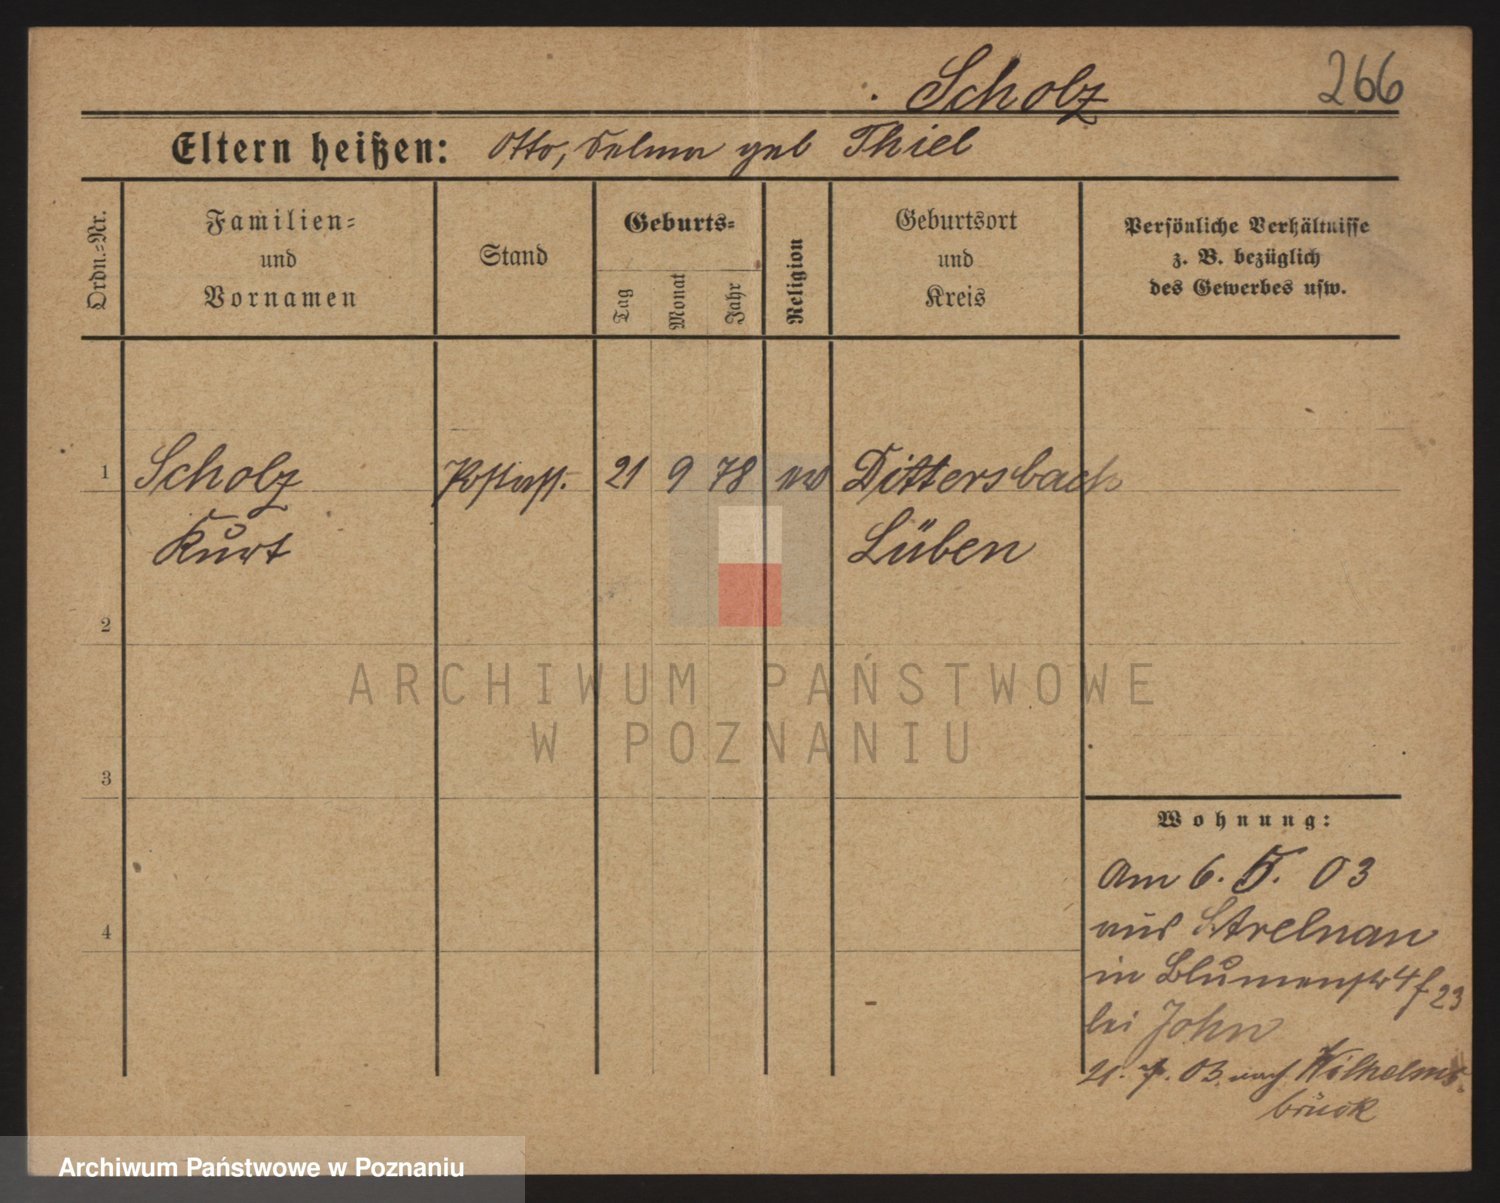 Scholz 266
Eltern heißen: Otto, Selma geb Thiel
Ordn.=Nr.
Familien=
und
Vornamen
Stand
Geburts=
Tag
Monat
Jahr
Religion
Geburtsort
und
Kreis
Persönliche Verhältnisse
z. B. bezüglich
des Gewerbes usw.
1 Scholz Postass. 21 9 78 ev Dittersbach
Kurt Lüben
2
ARCHIWUM PAŃSTWOWE
W POZNANIU
3
Wohnung:
Am 6. 5. 03
aus Strelnau
in Blumenstr 4 f 23
4
bei John
21. 7. 03 nach Wilhelms-
brück
Archiwum Państwowe w Poznaniu